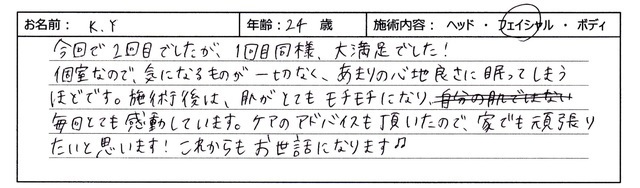 お名前： K.Y 年齢：24 歳 施術内容： ヘッド ・ フェイシャル ・ ボディ
今回で2回目でしたが、1回目同様、大満足でした！
個室なので、気になるものが一切なく、あまりの心地良さに眠ってしまう
ほどです。施術後は、肌がとてもモチモチになり、自分の肌ではない
毎回とても感動しています。ケアのアドバイスも頂いたので、家でも頑張り
たいと思います！これからもお世話になります♫